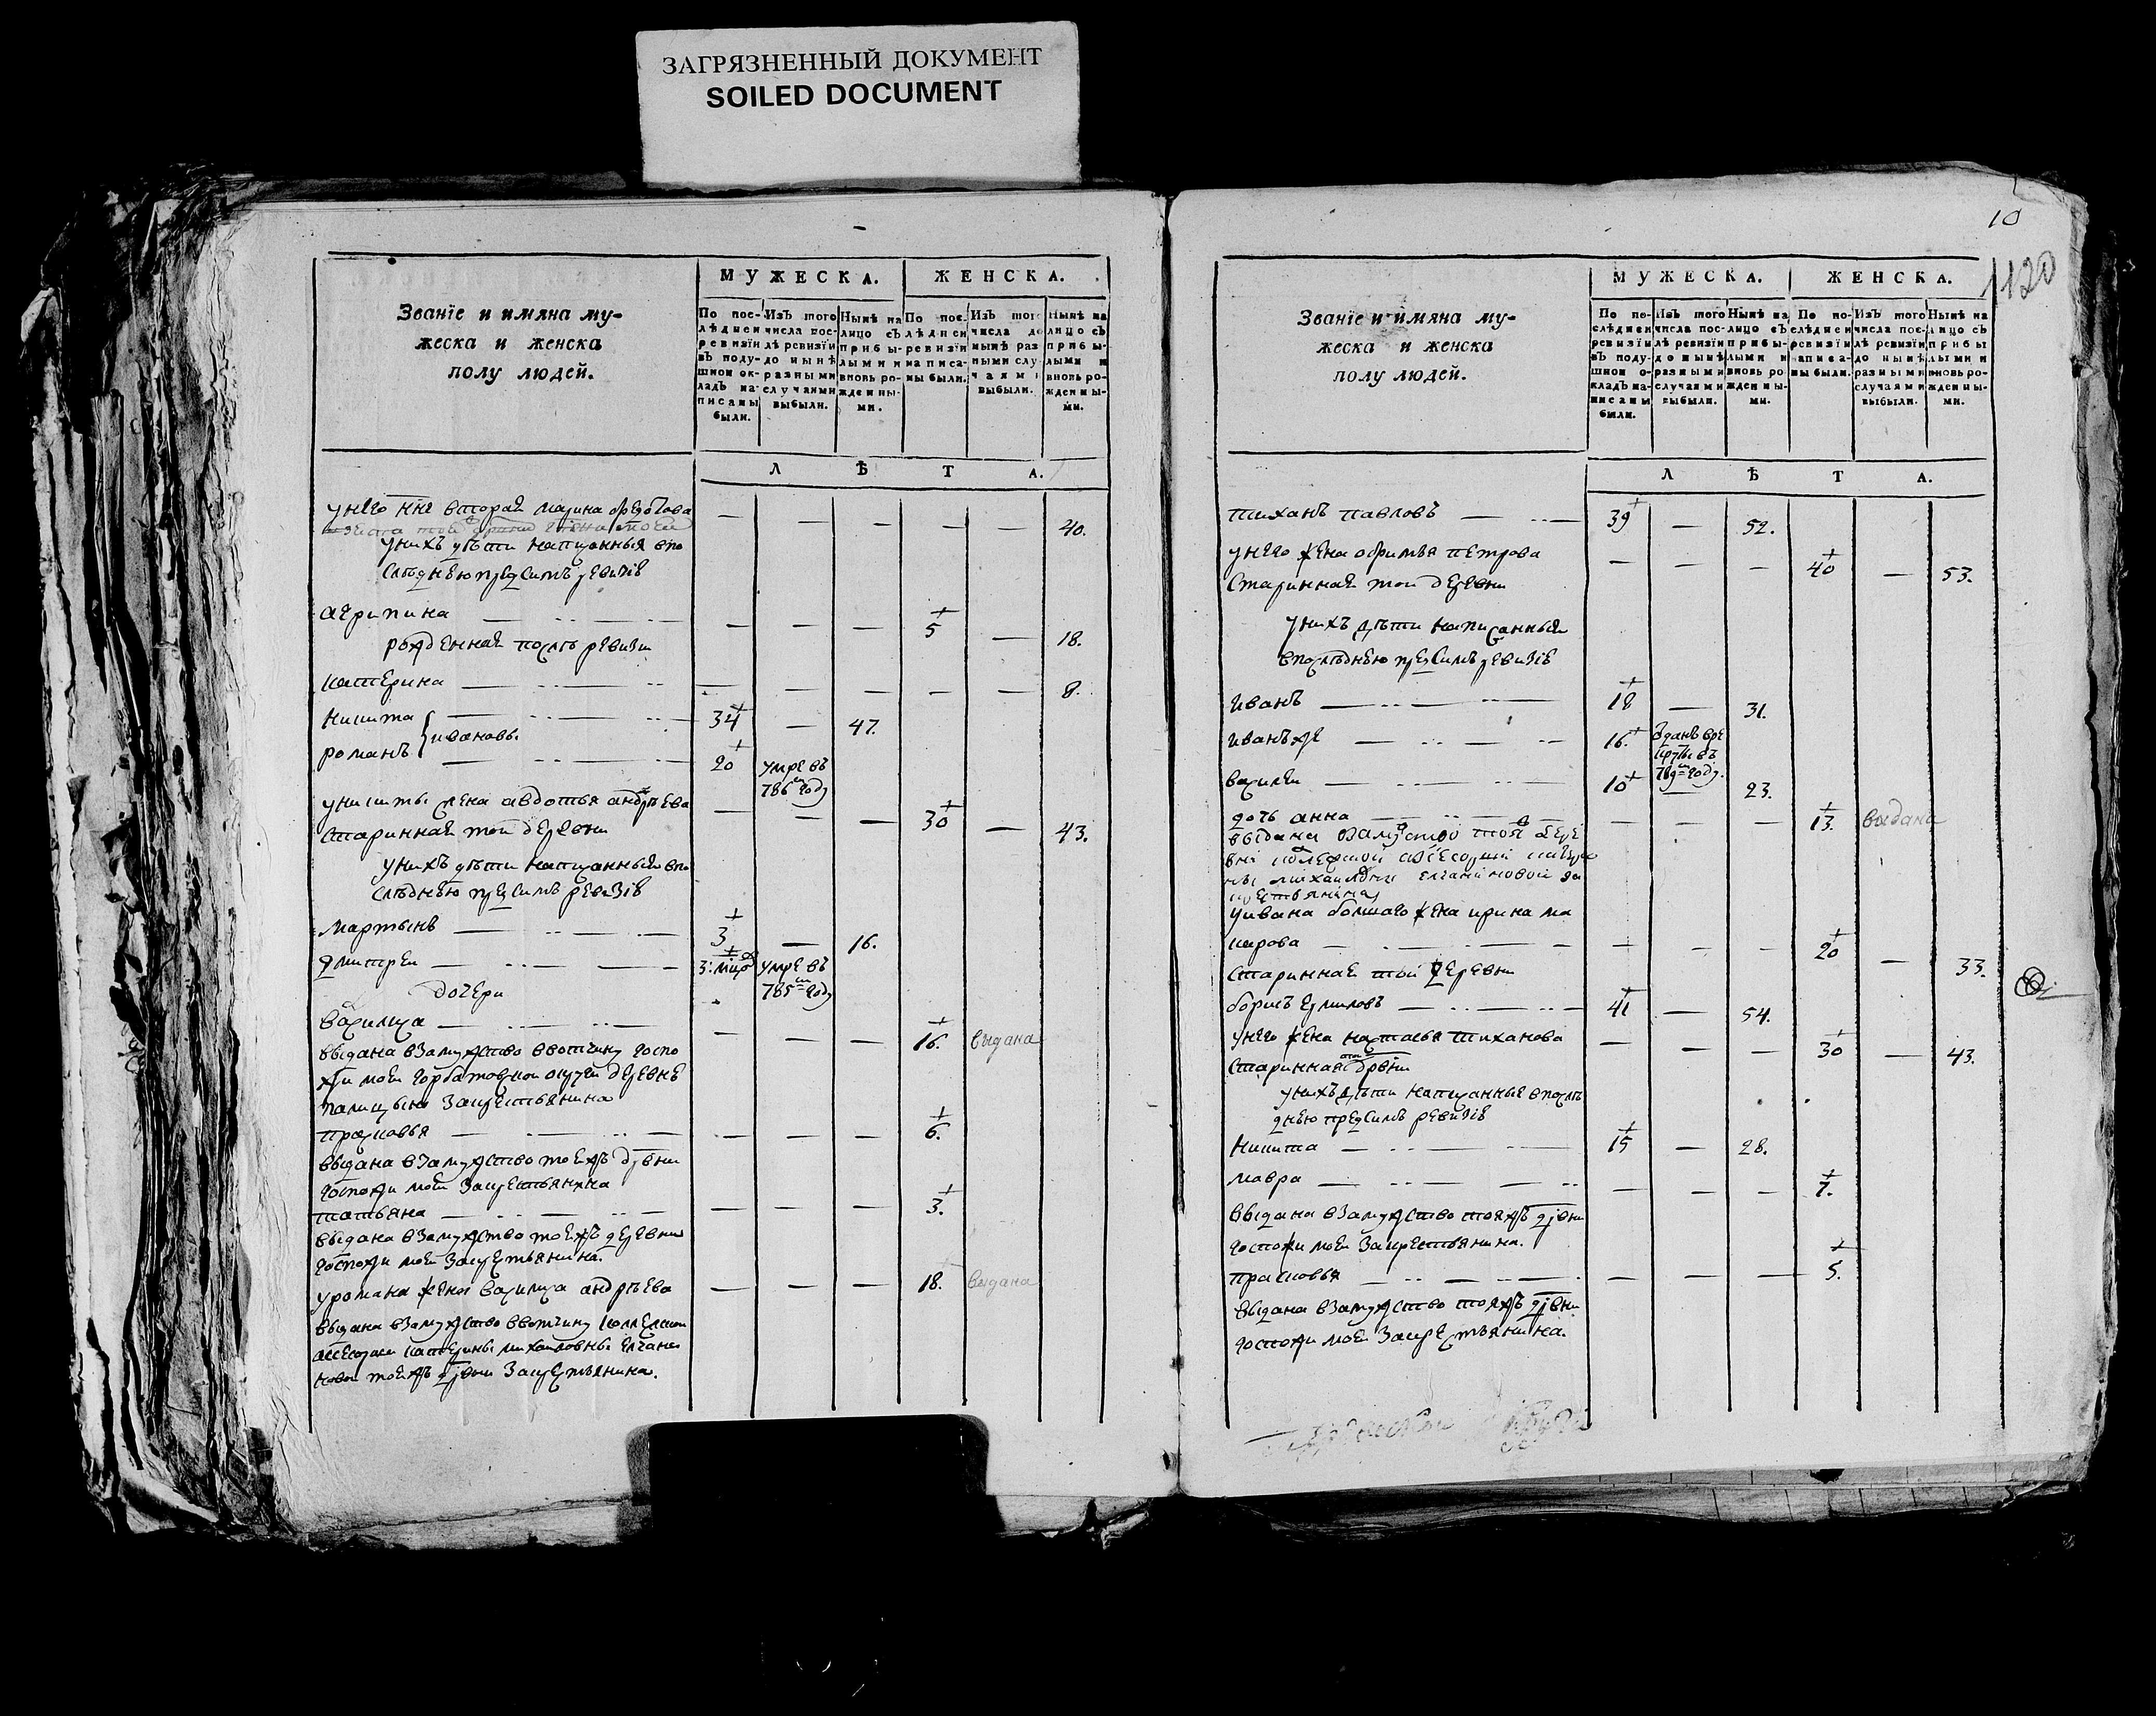 ЗАГРЯЗНЕННЫЙ ДОКУМЕНТ
SOILED DOCUMENT
Званїе и имяна му-
жеска и женска
полу людей.
МУЖЕСКА.
ЖЕНСКА.
По пос-
лѣдней
ревизїи
въ поду-
шной ок-
ладъ на-
писаны
были.
Изъ того
числа пос-
лѣ ревизїи
до нынѣ
разными
случаями
выбыли.
Нынѣ на
лицо съ
прибы-
лыми и
вновь ро-
жденны-
ми.
По пос-
лѣдней
ревизїи
написа-
ны были.
Изъ того
числа до
нынѣ раз
ными слу-
чаями
выбыли.
Нынѣ на
лицо съ
прибы-
лыми и
вновь ро-
жденны-
ми.
ЛѢТА.
унего нне вторая марина
40.
унихъ дѣти написанныя впо
слѣднею предсимъ ревизїе
агрипина 5 18.
рожденная послѣ ревизи
катерина 8.
никита ивановы 34 47.
романъ 20 умре въ
786м году
уникиты жена авдотья андрѣева 30 43.
старинная той деревни
унихъ дѣти написанныя впо
слѣднею предсимъ ревизїе
мартынъ 3 16.
дмитреи 3: умре въ
785м году
дочери
василиса 16. выдана
выдана взамужство ввотчину госпо
жи моей горбатовской округи деревне
палицына закрестьянина
прасковья 6.
выдана взамужство тоежъ дрвни
госпожи моей закрестьянина
татьяна 3.
выдана взамужство тоежъ деревни
госпожи моей закрестьянина.
уромана жена василиса андрѣева 18. выдана
выдана взамужство ввотчину колежской
асесорши катерины михаиловны елчани
новой тоежъ дрвни закрестьянина.
10
1120
Званїе и имяна му-
жеска и женска
полу людей.
МУЖЕСКА.
ЖЕНСКА.
По по-
слѣдней
ревизїи
въ поду-
шной о-
кладъ на-
писаны
были.
Изъ того
числа пос-
лѣ ревизїи
до нынѣ
разными
случаями
выбыли.
Нынѣ на
лицо съ
прибы-
лыми и
вновь ро
жденны-
ми.
По по-
слѣдней
ревизїи
написа-
ны были.
Изъ того
числа пос-
лѣ ревизїи
до нынѣ
разными
случаями
выбыли.
Нынѣ на
лицо съ
прибы
лыми и
вновь ро-
жденны-
ми.
ЛѢТА.
тиханъ павловъ 39 52.
унего жена офимья петрова 40 53.
старинная той деревни
унихъ дѣти написанныя
впослѣднею предсимъ ревизїе
иванъ 18 31.
иванъ же 16. зданъ вре
круты въ
789м году.
василеи 10 23.
дочь анна 13. выдана
выдана взамуство той дере
вни колежской асесорши катери
ны михаиловны елчаниновой за
крестьянина
уивана болшаго жена ирина ма
карова 20 33.
старинная той деревни
борисъ ермиловъ 41 54.
унего жена настасья тиханова 30 43.
старинная той дрвни
унихъ дѣти написанные впослѣ
днею предсимъ ревизїе
никита 15 28.
мавра 7.
выдана взамужство тояжъ дрвни
госпожи моей закрестьянина.
прасковья 5.
выдана взамужство тояжъ дрвни
госпожи моей закрестьянина.